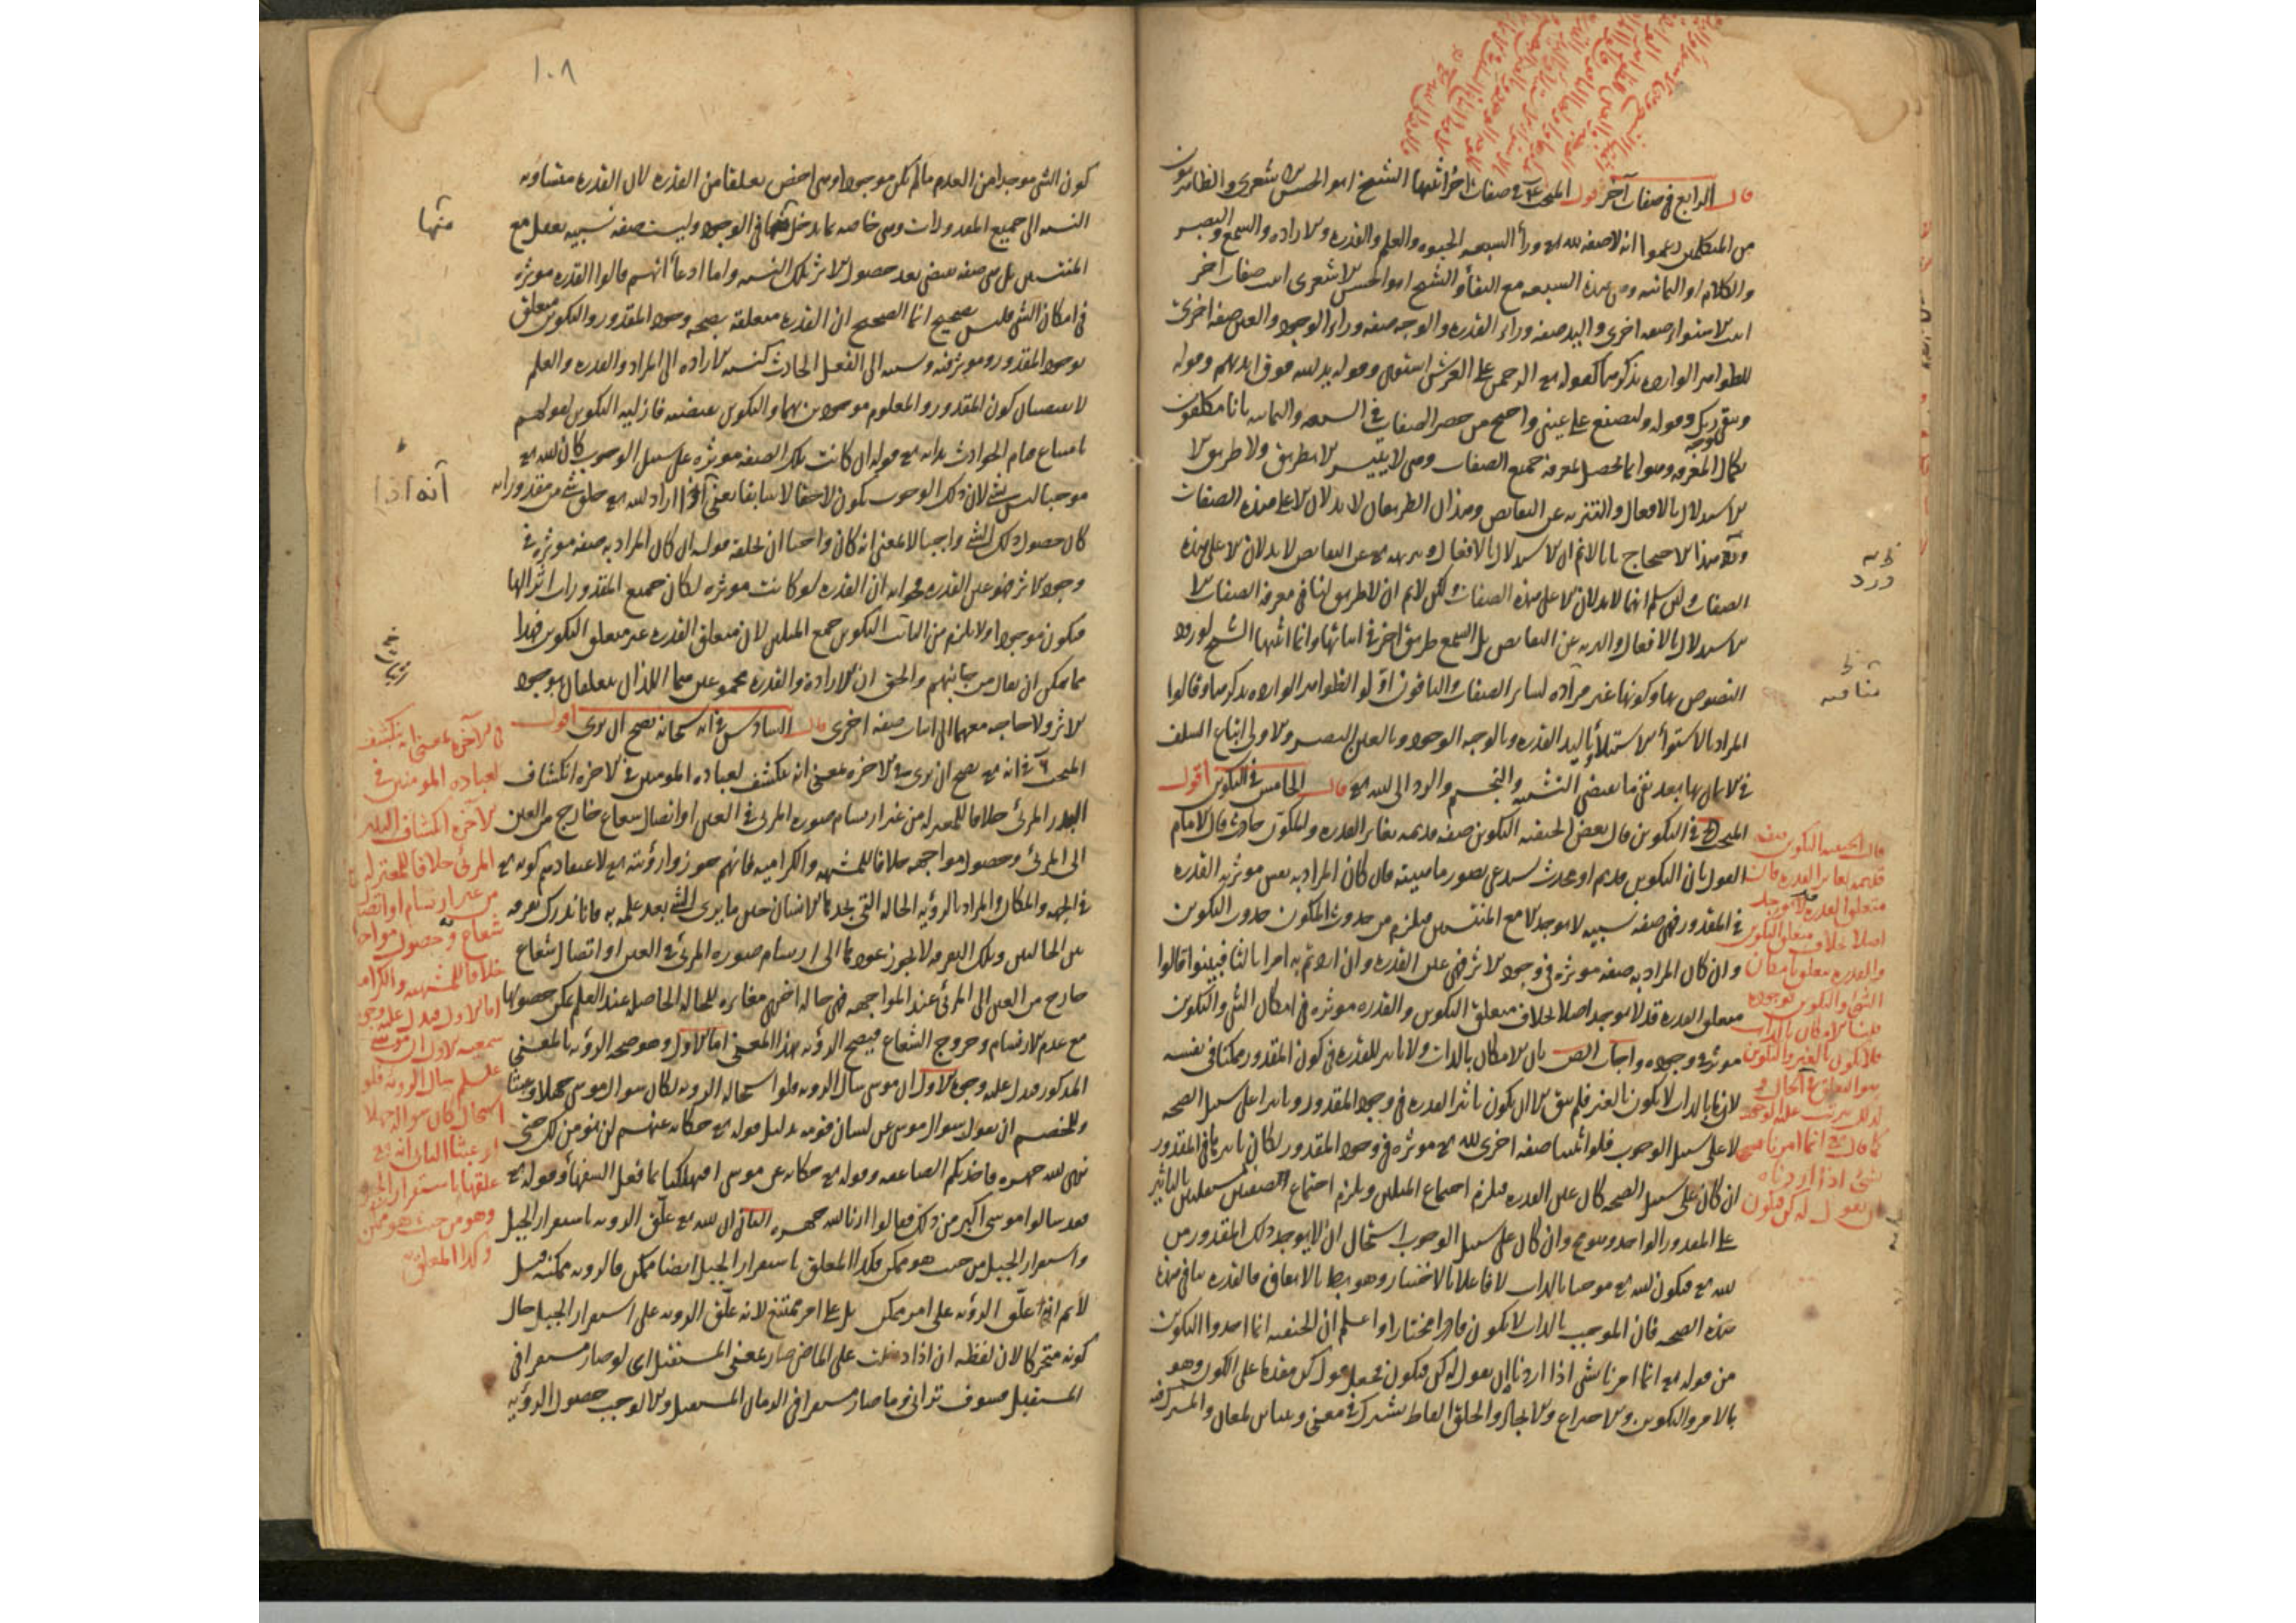 قال الرابع في صفات آخر اقول المبحث في صفات اخر اثبتها الشيخ ابو الحسن الاشعري والظاهريون
من المتكلمين زعموا انه لا صفة لله تع وراء السبعة الحيوة والعلم والقدرة والارادة والسمع والبصر
والكلام او الثمانية وهي هذه السبعة مع البقاء والشيخ ابو الحسن الاشعري اثبت صفات اخر
اثبت الاستواء صفة اخرى واليد صفة وراء القدرة والوجه صفة وراء الوجود والعين صفة اخرى
للظواهر الواردة بذكرها كقوله تع الرحمن على العرش استوى وقوله يد الله فوق ايديهم وقوله
ويبقى وجه ربك وقوله ولتصنع على عيني واحتج من حصر الصفات في السبعة والثمانية بانا مكلفون
بكمال المعرفة وهو انما يحصل بمعرفة جميع الصفات وهي لا يتيسر الا بطريق ولا طريق الا
الاستدلال بالافعال والتنزيه عن النقايص وهذان الطريقان لا يدلان الا على هذه الصفات
هذا الاحتجاج بانا لانم ان الاستدلال بالافعال وتنزيهه تع عن النقايص لا يدلان الا على هذه
الصفات ولئن سلم انهما لا يدلان الا على هذه الصفات ولكن لانم ان لا طريق لنا في معرفة الصفات الا
الاستدلال بالافعال والتنزيه عن النقايص بل السمع طريق اخر في اثباتها وانما اثبتها الشيخ لورود
النصوص بها وكونها غير مرادفة لساير الصفات والباقون اولوا الظواهر الواردة بذكرها وقالوا
المراد بالاستواء الاستيلاء وباليد القدرة وبالوجه الوجود وبالعين البصر والاولى اتباع السلف
في الايمان بها بعد نفي ما يقتضي التشبيه والتجسيم والرد الى الله تع قال الخامس في التكوين اقول
المبحث في التكوين قال بعض الحنفية التكوين صفة قديمة تغاير القدرة والمكون حادث قال الامام
القول بان التكوين قديم او محدث يستدعي تصور ماهيته فان كان المراد به نفس مؤثرية القدرة
في المقدور فهي صفة نسبية لا توجد الا مع المنتسبين فيلزم من حدوث المكون حدوث التكوين
وان كان المراد به صفة مؤثرة في وجود الاثر فهي عين القدرة وان اردتم به امرا ثالثا فبينوا قالوا
متعلق القدرة قد لا يوجد اصلا بخلاف متعلق التكوين والقدرة مؤثرة في امكان الشئ والتكوين
مؤثر في وجوده واجاب المص بان الامكان بالذات ولا تاثير للقدرة في كون المقدور ممكنا في نفسه
لان ما بالذات لا يكون بالغير فلم يبق الا ان يكون تاثير القدرة في وجود المقدور تاثيرا على سبيل الصحة
لا على سبيل الوجوب فلو اثبتنا صفة اخرى لله تع مؤثرة في وجود المقدور لكان تاثيرها في المقدور
ان كان على سبيل الصحة كان عين القدرة فيلزم اجتماع المثلين ويلزم اجتماع الصفتين مستقلتين بالتاثير
على المقدور الواحد وهو مح وان كان على سبيل الوجوب استحال ان لا يوجد ذلك المقدور من
الله تع فيكون الله تع موجبا بالذات لا فاعلا بالاختيار وهو بط بالاتفاق فالقدرة تنافي هذه
هذه الصحة فان الموجب بالذات لا يكون قادرا مختارا واعلم ان الحنفية انما اخذوا التكوين
من قوله تع انما امرنا لشئ اذا اردناه ان نقول له كن فيكون فجعل قول كن مقدما على الكون وهو
بالامر والتكوين والاختراع والايجاد والخلق الفاظ تشترك في معنى وتتباين بمعان والمشترك فيه
قال الحنفية التكوين صفة
قديمة تغاير القدرة فان
متعلق القدرة قد لا توجد
اصلا بخلاف متعلق التكوين
والقدرة متعلقها امكان
الشئ والتكوين بوجوده
قلنا الامكان بالذات
فلا يكون بالغير والتكوين
هو التعلق في الحال و
لذلك يترتب عليه الوجود
كما قال تع انما امرنا
لشئ اذا اردناه
ان نقول له كن فيكون
١٠٨
كون الشئ موجدا من العدم ما لم يكن موجودا وهي اخص تعلقا من القدرة لان القدرة متساوية
النسبة الى جميع المقدورات وهي خاصة بما يدخل منها في الوجود وليست صفة نسبية تعقل مع
المنتسبين بل هي صفة تقتضي بعد حصول الاثر تلك النسبة واما ادعاء انهم قالوا القدرة مؤثرة
في امكان الشئ فليس بصحيح انما الصحيح ان القدرة متعلقة بصحة وجود المقدور والتكوين متعلق
بوجود المقدور ومؤثر فيه ونسبته الى الفعل الحادث كنسبة الارادة الى المراد والقدرة والعلم
لا يقتضيان كون المقدور والمعلوم موجودين بهما والتكوين يقتضيه فازلية التكوين لقولهم
بامتناع قيام الحوادث بذاته تع قوله ان كانت تلك الصفة مؤثرة على سبيل الوجوب كان الله تع
موجبا ليس بشئ لان ذلك الوجوب يكون لاحقا لا سابقا يعني انه اذا اراد الله تع خلق شئ من مقدوراته
كان حصول ذلك الشئ واجبا لا بمعنى انه كان واجبا ان يخلقه قوله ان كان المراد به صفة مؤثرة في
وجود الاثر فهو عين القدرة فجوابه ان القدرة لو كانت مؤثرة لكان جميع المقدورات اثرا لها
فيكون موجودا ولا يلزم من اثبات التكوين جمع المثلين لان متعلق القدرة غير متعلق التكوين فهذا
ما يمكن ان يقال من جانبهم والحق ان الارادة والقدرة مجموعين هما اللذان يتعلقان بوجود
الاثر ولا حاجة معهما الى اثبات صفة اخرى قال السادس في انه سبحانه يصح ان يرى اقول
المبحث في انه تع يصح ان يرى في الاخرة بمعنى انه ينكشف لعباده المومنين في الاخرة انكشاف
البدر المرئي خلافا للمعتزلة من غير ارتسام صورة المرئي في العين او اتصال شعاع خارج من العين
الى المرئي وحصول مواجهة خلافا للمشبهة والكرامية فانهم جوزوا رؤيته تع لاعتقادهم كونه تع
في الجهة والمكان والمراد بالرؤية الحالة التي يجدها الانسان حين ما يرى الشئ بعد علمه به فانا ندرك تفرقة
بين الحالتين وتلك التفرقة لا يجوز عودها الى ارتسام صورة المرئي في العين او اتصال شعاع
خارج من العين الى المرئي عند المواجهة فهي حالة اخرى مغايرة للحالة الحاصلة عند العلم يمكن حصولها
مع عدم الارتسام وخروج الشعاع فيصح الرؤية بهذا المعنى اما الاول وهو صحة الرؤية بالمعنى
المذكور فيدل عليه وجوه الاول ان موسى سال الرؤية فلو استحالة الرؤية لكان سوال موسى جهلا وعبثا
وللخصم ان يقول سوال موسى عن لسان قومه بدليل قوله تع حكاية عنهم لن نؤمن لك حتى
نرى الله جهرة فاخذتكم الصاعقة وقوله تع حكاية عن موسى اتهلكنا بما فعل السفهاء وقوله تع
فقد سالوا موسى اكبر من ذلك فقالوا ارنا الله جهرة الثاني ان الله تع علق الرؤية باستقرار الجبل
واستقرار الجبل من حيث هو ممكن فكذا المعلق باستقرار الجبل ايضا ممكن فالرؤية ممكنة قيل
لانم انه علق الرؤية على امر ممكن بل على امر ممتنع لانه علق الرؤية على استقرار الجبل حال
كونه متحركا لان لفظة ان اذا دخلت على الماضي صار بمعنى المستقبل اي لو صار مستقرا في
المستقبل فسوف تراني وما صار مستقرا في الزمان المستقبل والا لوجب حصول الرؤية
منها
انه اذا
في الاخرة بمعنى انه ينكشف
لعباده المومنين في
الاخرة انكشاف البدر
المرئي خلافا للمعتزلة
من غير ارتسام او اتصال
شعاع وحصول مواجهة
خلافا للمشبهة والكرامية
اما الاول فيدل عليه وجوه
سمعية الاول ان موسى
عليه السلم سال الرؤية فلو
استحال كان سواله جهلا
او عبثا الثاني انه تع
علقها باستقرار الجبل
وهو من حيث هو ممكن
وكذا المعلق به